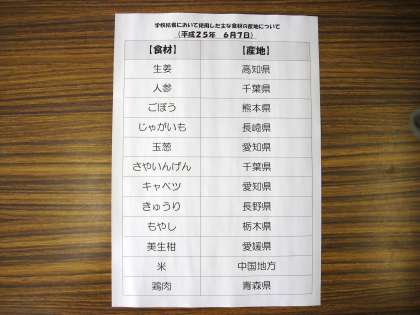 学校給食において使用した主な食材の産地について
（平成２５年　６月７日）
【食材】　【産地】
生姜　高知県
人参　千葉県
ごぼう　熊本県
じゃがいも　長崎県
玉葱　愛知県
さやいんげん　千葉県
キャベツ　愛知県
きゅうり　長野県
もやし　栃木県
美生柑　愛媛県
米　中国地方
鶏肉　青森県